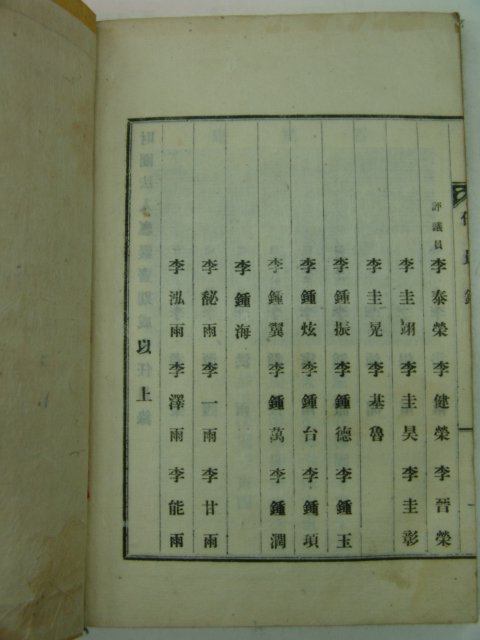 評議員 李泰榮 李健榮 李晉榮
李圭翊 李圭昊 李圭彰
李圭晃 李基魯
李鍾振 李鍾德 李鍾玉
李鍾炫 李鍾台 李鍾項
李鍾翼 李鍾萬 李鍾潤
李鍾海
李馝雨 李一雨 李甘雨
李泓雨 李澤雨 李能雨
以上